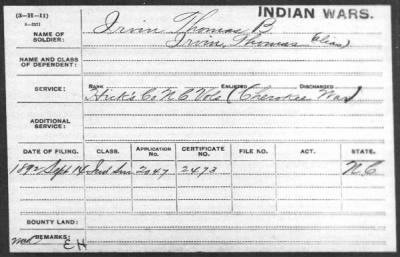 (3-H-11)
INDIAN WARS.
NAME OF SOLDIER: Irvin Thomas B
Irvin, Thomas (alias)
NAME AND CLASS OF DEPENDENT:
SERVICE: RANK ENLISTED DISCHARGED
Hick's Co N C Vols (Cherokee War)
ADDITIONAL SERVICE:
DATE OF FILING. CLASS. APPLICATION No. CERTIFICATE No. FILE NO. ACT. STATE.
1892 Sept 14 Ind Sur 2047 2473 N C
BOUNTY LAND:
REMARKS: E H